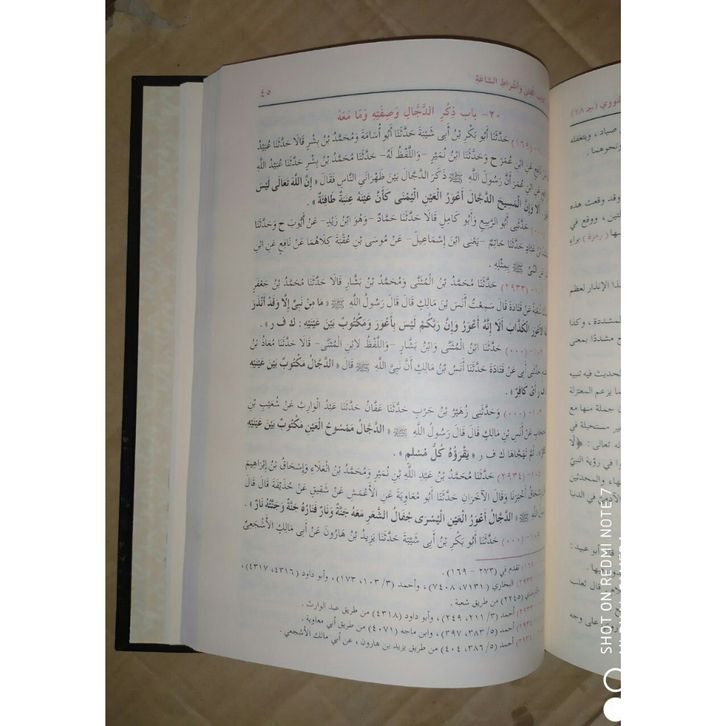 ٤٥
كتاب الفتن وأشراط الساعة
٢٠- باب ذِكْرِ الدَّجَّالِ وَصِفَتِهِ وَمَا مَعَهُ
حَدَّثَنَا أَبُو بَكْرِ بْنُ أَبِى شَيْبَةَ حَدَّثَنَا أَبُو أُسَامَةَ وَمُحَمَّدُ بْنُ بِشْرٍ قَالاَ حَدَّثَنَا عُبَيْدُ
عَنِ ابْنِ عُمَرَ ح وَحَدَّثَنَا ابْنُ نُمَيْرٍ -وَاللَّفْظُ لَهُ- حَدَّثَنَا مُحَمَّدُ بْنُ بِشْرٍ حَدَّثَنَا عُبَيْدُ
ابْنِ عُمَرَ أَنَّ رَسُولَ اللَّهِ ﷺ ذَكَرَ الدَّجَّالَ بَيْنَ ظَهْرَانَىِ النَّاسِ فَقَالَ « إِنَّ اللَّهَ تَعَالَى لَيْسَ
أَلاَ وَإِنَّ الْمَسِيحَ الدَّجَّالَ أَعْوَرُ الْعَيْنِ الْيُمْنَى كَأَنَّ عَيْنَهُ عِنَبَةٌ طَافِئَةٌ » .
حَدَّثَنِى أَبُو الرَّبِيعِ وَأَبُو كَامِلٍ قَالاَ حَدَّثَنَا حَمَّادٌ -وَهُوَ ابْنُ زَيْدٍ- عَنْ أَيُّوبَ ح وَحَدَّثَنَا
حَدَّثَنَا حَاتِمٌ -يَعْنِى ابْنَ إِسْمَاعِيلَ- عَنْ مُوسَى بْنِ عُقْبَةَ كِلاَهُمَا عَنْ نَافِعٍ عَنِ ابْنِ
عَنِ النَّبِىِّ ﷺ بِمِثْلِهِ .
(٢٩٣٣) حَدَّثَنَا مُحَمَّدُ بْنُ الْمُثَنَّى وَمُحَمَّدُ بْنُ بَشَّارٍ قَالاَ حَدَّثَنَا مُحَمَّدُ بْنُ جَعْفَرٍ
شُعْبَةُ عَنْ قَتَادَةَ قَالَ سَمِعْتُ أَنَسَ بْنَ مَالِكٍ قَالَ قَالَ رَسُولُ اللَّهِ ﷺ « مَا مِنْ نَبِىٍّ إِلاَّ وَقَدْ أَنْذَرَ
الأَعْوَرَ الْكَذَّابَ أَلاَ إِنَّهُ أَعْوَرُ وَإِنَّ رَبَّكُمْ لَيْسَ بِأَعْوَرَ وَمَكْتُوبٌ بَيْنَ عَيْنَيْهِ : ك ف ر » .
(٠٠٠) حَدَّثَنَا ابْنُ الْمُثَنَّى وَابْنُ بَشَّارٍ -وَاللَّفْظُ لاِبْنِ الْمُثَنَّى- قَالاَ حَدَّثَنَا مُعَاذُ بْنُ
حَدَّثَنِى أَبِى عَنْ قَتَادَةَ حَدَّثَنَا أَنَسُ بْنُ مَالِكٍ أَنَّ نَبِىَّ اللَّهِ ﷺ قَالَ « الدَّجَّالُ مَكْتُوبٌ بَيْنَ عَيْنَيْهِ
ر أَىْ كَافِرٌ » .
(٠٠٠) وَحَدَّثَنِى زُهَيْرُ بْنُ حَرْبٍ حَدَّثَنَا عَفَّانُ حَدَّثَنَا عَبْدُ الْوَارِثِ عَنْ شُعَيْبِ بْنِ
عَنْ أَنَسِ بْنِ مَالِكٍ قَالَ قَالَ رَسُولُ اللَّهِ ﷺ « الدَّجَّالُ مَمْسُوحُ الْعَيْنِ مَكْتُوبٌ بَيْنَ عَيْنَيْهِ
ثُمَّ تَهَجَّاهَا ك ف ر « يَقْرَؤُهُ كُلُّ مُسْلِمٍ » .
(٢٩٣٤) حَدَّثَنَا مُحَمَّدُ بْنُ عَبْدِ اللَّهِ بْنِ نُمَيْرٍ وَمُحَمَّدُ بْنُ الْعَلاَءِ وَإِسْحَاقُ بْنُ إِبْرَاهِيمَ
إِسْحَاقُ أَخْبَرَنَا وَقَالَ الآخَرَانِ حَدَّثَنَا أَبُو مُعَاوِيَةَ عَنِ الأَعْمَشِ عَنْ شَقِيقٍ عَنْ حُذَيْفَةَ قَالَ قَالَ
اللَّهِ ﷺ « الدَّجَّالُ أَعْوَرُ الْعَيْنِ الْيُسْرَى جُفَالُ الشَّعَرِ مَعَهُ جَنَّةٌ وَنَارٌ فَنَارُهُ جَنَّةٌ وَجَنَّتُهُ نَارٌ » .
(٠٠٠) حَدَّثَنَا أَبُو بَكْرِ بْنُ أَبِى شَيْبَةَ حَدَّثَنَا يَزِيدُ بْنُ هَارُونَ عَنْ أَبِى مَالِكٍ الأَشْجَعِىِّ
تقدم في (٢٧٣ - ١٦٩) .
البخاري (٧١٣١، ٧٤٠٨) ، وأحمد (٣/ ١٠٣، ١٧٣) ، وأبو داود (٤٣١٦، ٤٣١٧) ،
(٢٢٤٥) من طريق شعبة .
أحمد (٣/ ٢١١، ٢٤٩) ، وأبو داود (٤٣١٨) من طريق عبد الوارث .
أحمد (٥/ ٣٨٣، ٣٩٧) ، وابن ماجه (٤٠٧١) من طريق أبي معاوية .
أحمد (٥/ ٣٨٦، ٤٠٤) من طريق يزيد بن هارون ، عن أبي مالك الأشجعي .
صياد ، ويتغفله
ونحوهما .
وقد وقعت هذه
ووقع في
براء
الإنذار لعظم
المشددة ، وكذا
مشددًا بمعنى
الحديث فيه تنبيه
يزعم المعتزلة
جملة منها مع
غير مستحيلة في
تعالى :
في رؤية النبي
والمحدثين
في الدنيا
أبو عبيد :
قال ثعلب
على وجه
SHOT ON REDMI NOTE 7